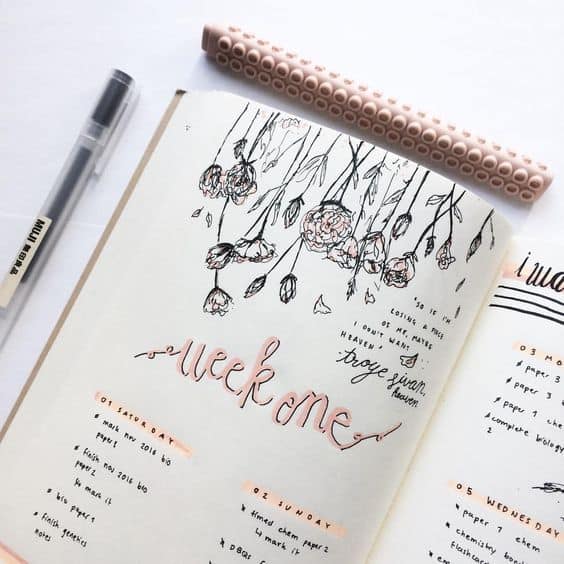 MUJI
無印良品
"SO IF I'M
LOSING A PIECE
OF ME, MAYBE
I DON'T WANT
HEAVEN"
troye sivan,
heaven
week one
01 SATURDAY
mark nov 2016 bio
paper 1
finish nov 2016 bio
paper 2
↳ mark it
bio paper 1
finish genetics
notes
02 SUNDAY
timed chem paper 2
↳ mark it
DBQs
i wa
03 MO
paper 3
paper 3
paper 1 che
complete biology
2
05 WEDNESDAY
paper 1 chem
chemistry bond
flashcard